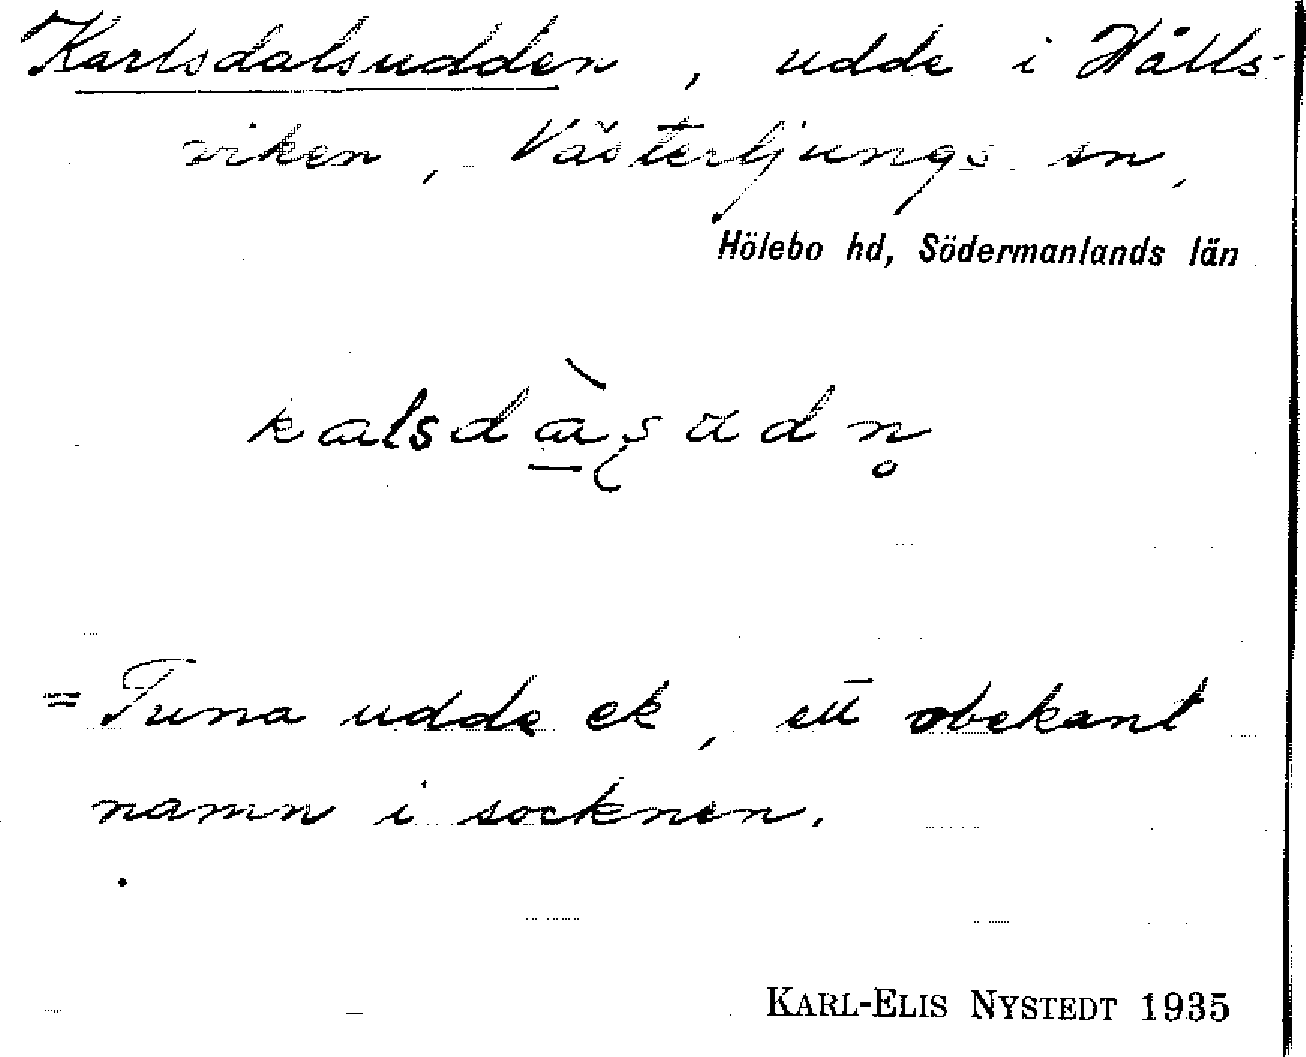 Karlsdalsudden, udde i Hålls-
viken, Västerljungs sn,
Hölebo hd, Södermanlands län
kalsdàsudn̥
= Tuna udde ek, ett obekant
namn i socknen.
KARL-ELIS NYSTEDT 1935